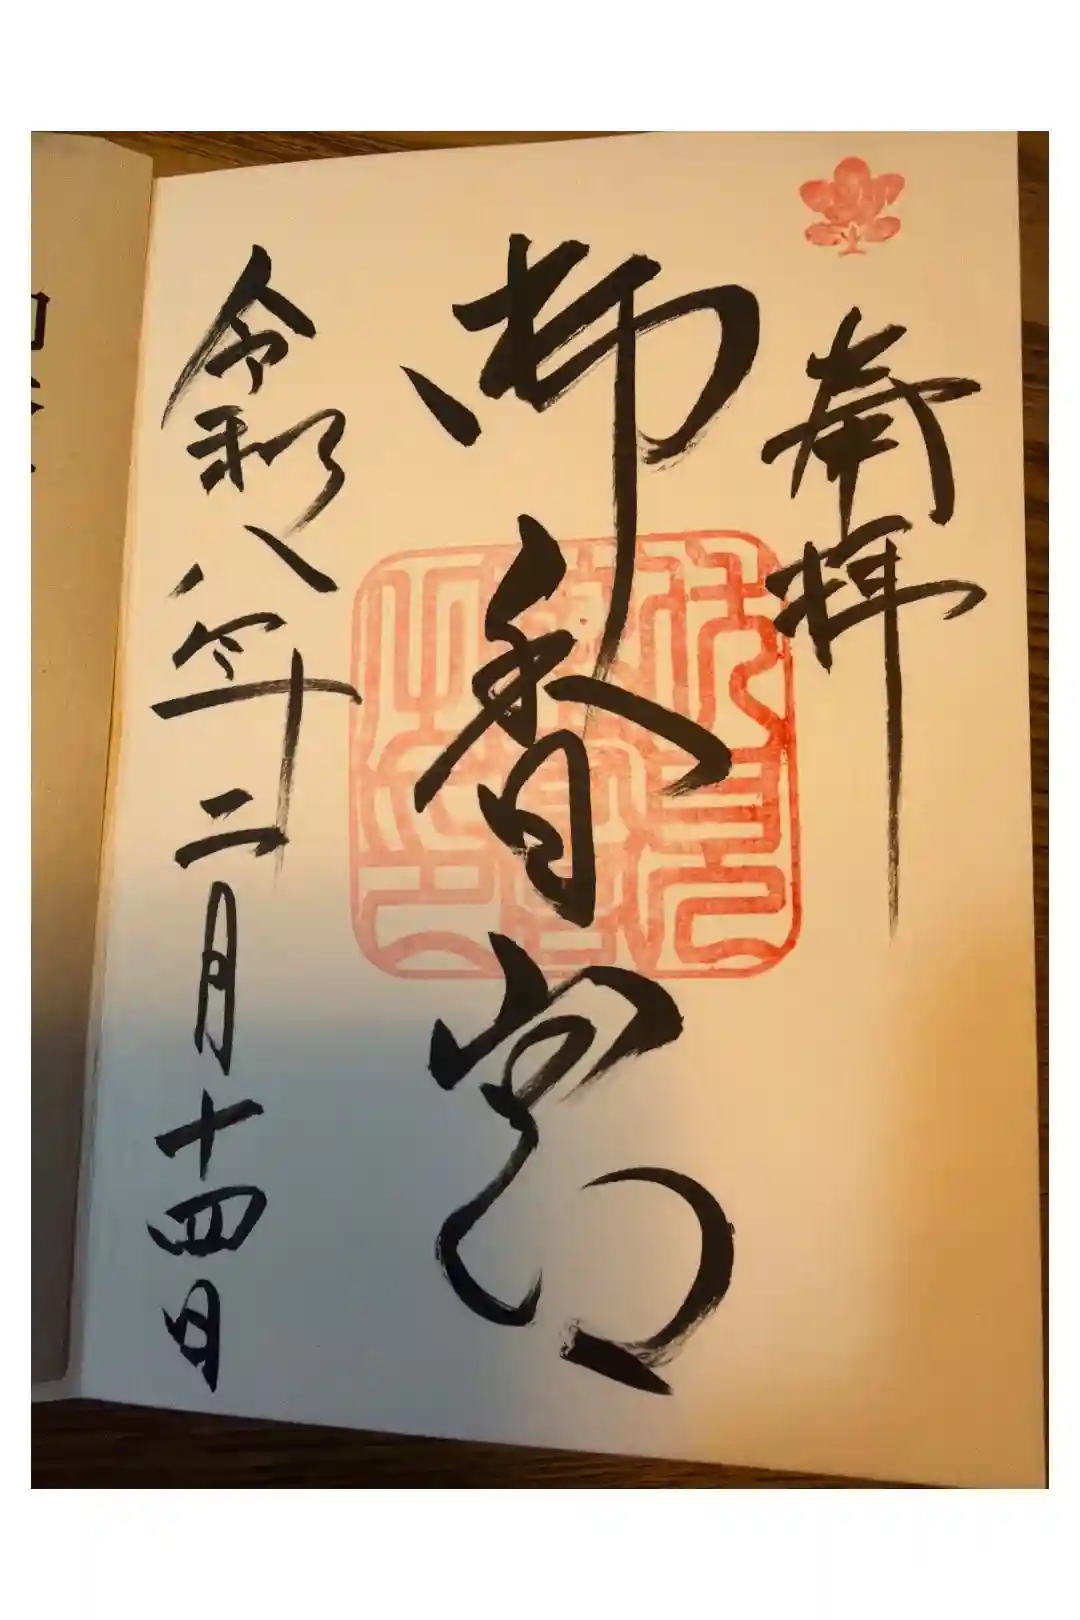 奉拝
御香宮
令和八年二月十四日